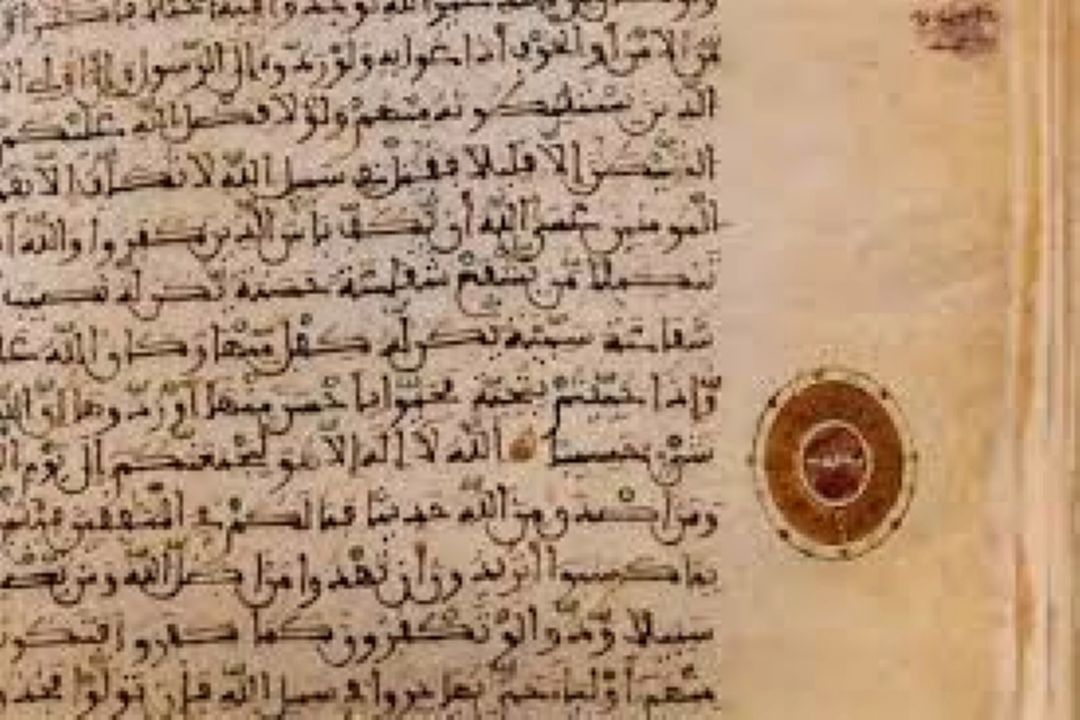 الله لوجدوا فيه اختلافا كثيرا
من الامن أو الخوف أذاعوا به ولو ردوه إلى الرسول وإلى أولى
الذين يستنبطونه منهم ولولا فضل الله عليكم
الشيطن إلا قليلا فقتل في سبيل الله لا تكلف إلا
المومنين عسى الله أن يكف بأس الذين كفروا والله
تنكيلا من يشفع شفعة حسنة يكن له نصيب
شفعة سيئة يكن له كفل منها وكان الله
وإذا حييتم بتحية فحيوا بأحسن منها أو ردوها إن الله
شيء حسيبا الله لا إله إلا هو ليجمعنكم إلى يوم
ومن اصدق من الله حديثا فما لكم في المنفقين
بما كسبوا أتريدون أن تهدوا من اضل الله ومن
سبيلا ودوا لو تكفرون كما كفروا فتكونو
منهم أولياء حتى يهاجروا في سبيل الله فإن تولوا